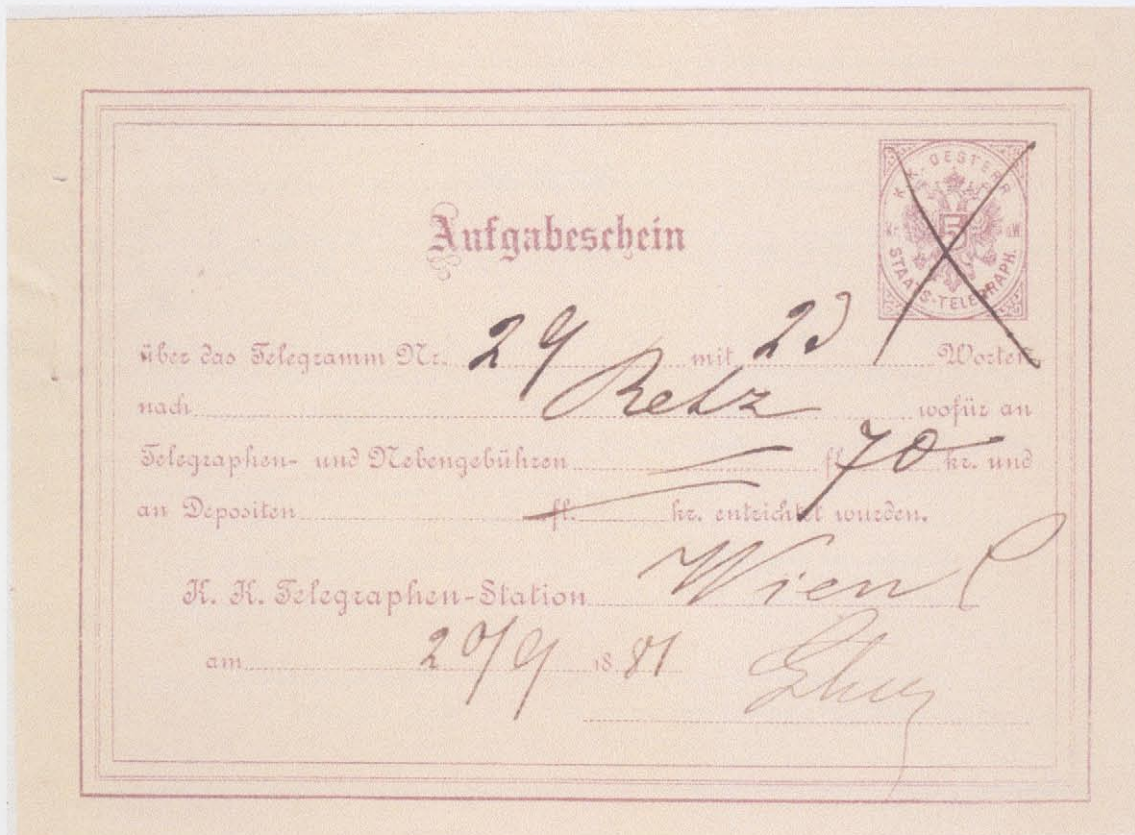 K.K. OESTERR.
Kr. 5 ö.W.
STAATS-TELEGRAPH.
Aufgabeschein
über das Telegramm Nr. 29 mit 23 Worten
nach Retz wofür an
Telegraphen- und Nebengebühren — fl. 70 kr. und
an Depositen — fl. kr. entrichtet wurden.
K. K. Telegraphen-Station Wien
am 20/9 1881